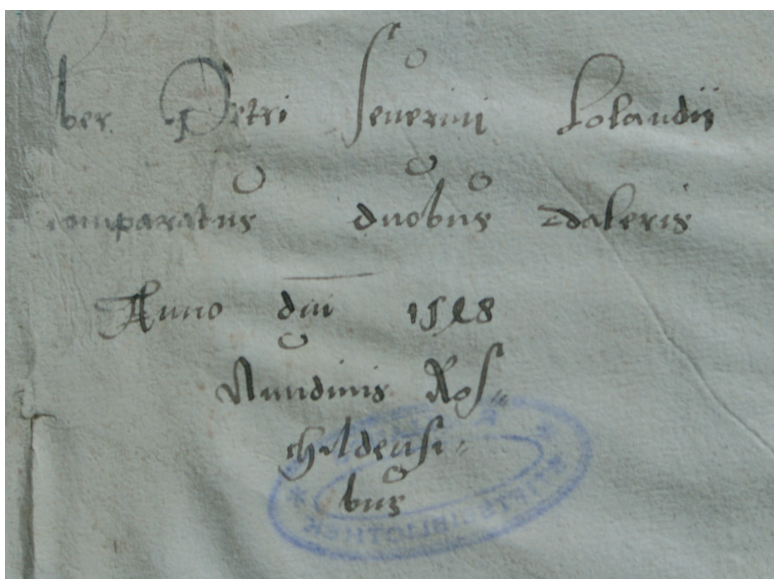 ber Petri Seuerini Lolandij
comparatus duobus daleris
Anno dni
Nundinis Ros=
childensi=
bus